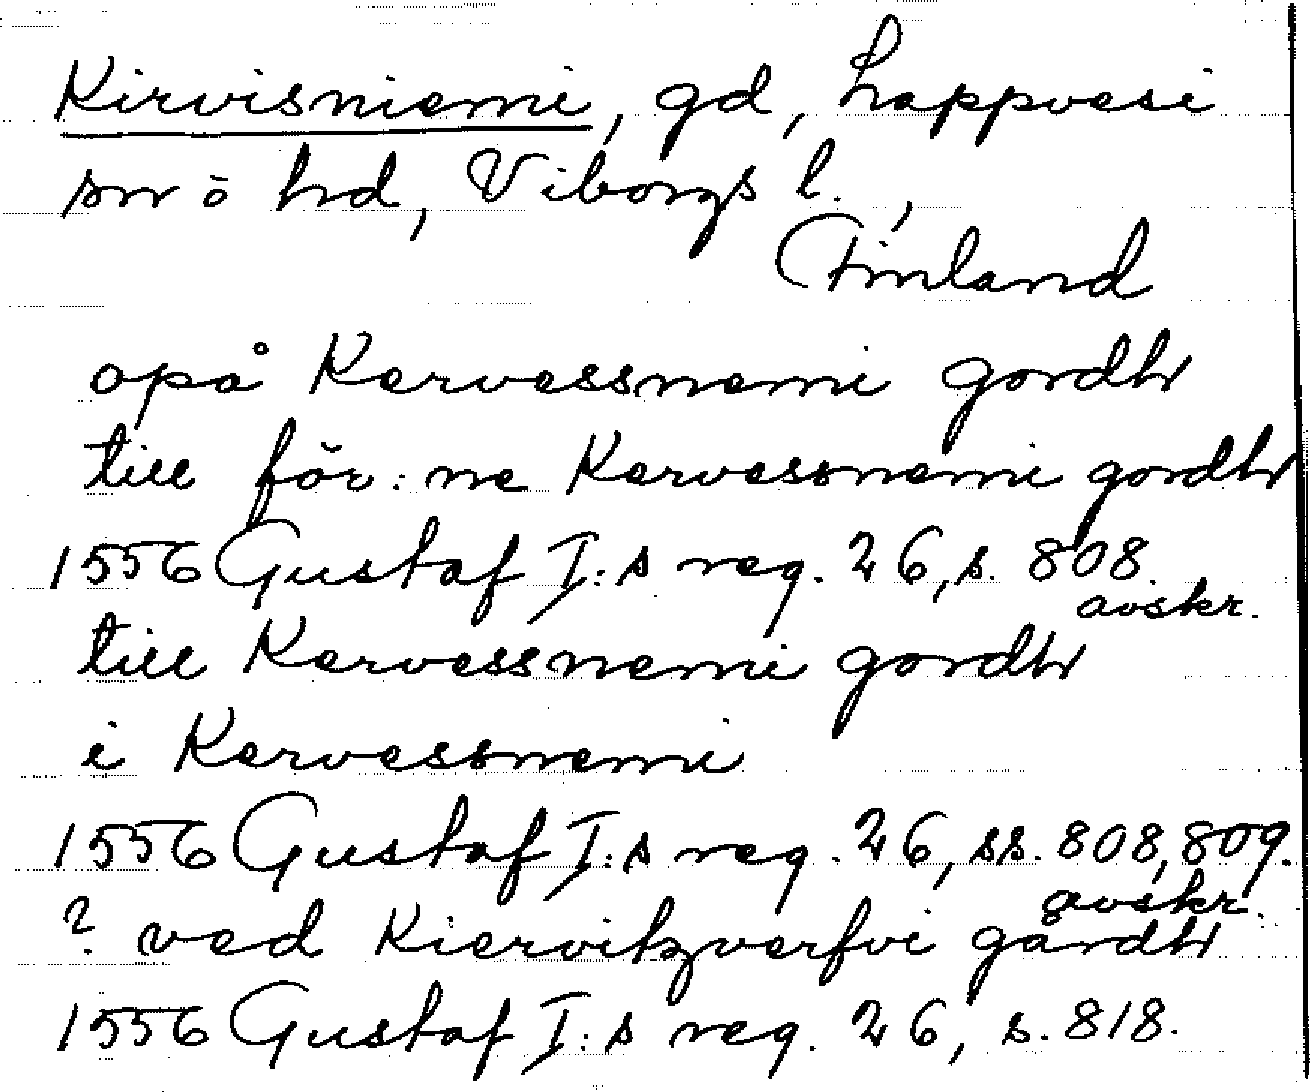 Kirvisniemi, gd, Lappvesi
sn o hd, Viborgs l.,
Finland
opå Kervessnemi gordh
till för:ne Kervessnemi gordh
1556 Gustaf I:s reg. 26, s. 808.
avskr.
till Kervessnemi gordh
i Kervessnemi
1556 Gustaf I:s reg. 26, ss. 808, 809.
avskr.
? ved Kiervitzverfvi gårdh
1556 Gustaf I:s reg. 26, s. 818.